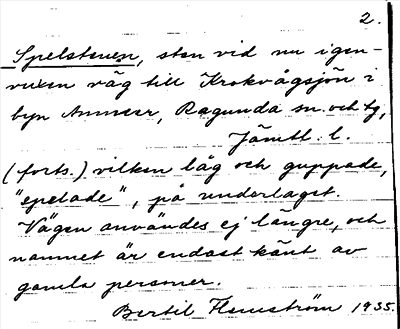 2.
Spelstenen, sten vid nu igen-
vuxen väg till Krokvågsjön i
byn Ammer, Ragunda sn. och tg,
Jämtl. l.
(forts.) vilken låg och guppade,
"spelade", på underlaget.
Vägen användes ej längre, och
namnet är endast känt av
gamla personer.
Bertil Flemström 1935.